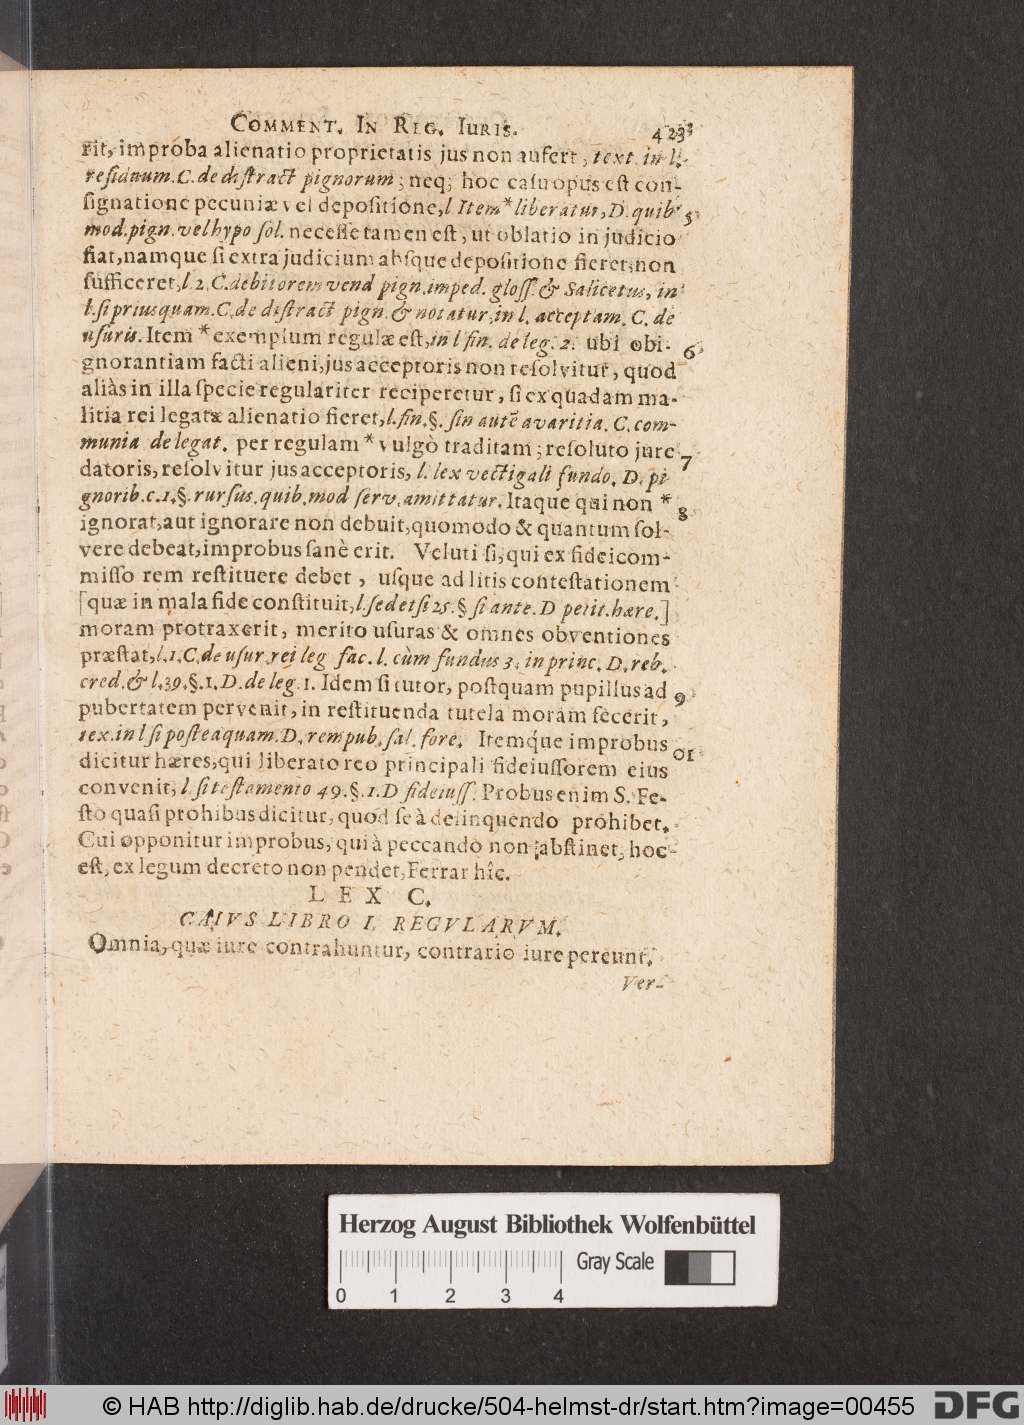 COMMENT. IN REG. IURIS. 423
rit, improba alienatio proprietatis jus non aufert, text. in l.
residuum. C. de distract pignorum; neq; hoc casu opus est con-
signatione pecuniæ vel depositione, l Item * liberatur, D. quib' 5
mod. pign. vel hypo sol. necesse tamen est, ut oblatio in judicio
fiat, namque si extra judicium absque depositione fieret, non
sufficeret, l. 2. C. debitorem vend pign. imped. gloss. & Salicetus, in
l. si prius quam. C. de distract pign. & notatur, in l. acceptam. C. de
usuris. Item * exemplum regulæ est, in l fin. de leg. 2. ubi obi- 6
gnorantiam facti alieni, jus acceptoris non resolvitur, quod
aliàs in illa specie regulariter reciperetur, si ex quadam ma-
litia rei legatæ alienatio fieret, l. fin. §. sin autē avaritia. C. com-
munia de legat. per regulam * vulgò traditam; resoluto jure 7
datoris, resolvitur jus acceptoris, l. lex vectigali fundo. D. pi
gnorib. c. 1. §. rursus. quib. mod serv. amittatur. Itaque qui non * 8
ignorat, aut ignorare non debuit, quomodo & quantum sol-
vere debeat, improbus sanè erit. Veluti si, qui ex fideicom-
misso rem restituere debet, usque ad litis contestationem
[quæ in mala fide constituit, l. sed et si 25. § si ante. D petit. hære.]
moram protraxerit, merito usuras & omnes obventiones
præstat, l. 1. C. de usur. rei leg fac. l. cùm fundus 3. in princ. D. reb.
cred. & l. 39. §. 1. D. de leg. 1. Idem si tutor, postquam pupillus ad 9
pubertatem pervenit, in restituenda tutela moram fecerit,
tex. in l si posteaquam. D. rem pub. sal. fore. Itemq́ue improbus 01
dicitur hæres, qui liberato reo principali fideiussorem eius
convenit, l. si testamento 49. §. 1. D fideiuss. Probus enim S. Fe-
sto quasi prohibus dicitur, quod se à delinquendo prohibet.
Cui opponitur improbus, qui à peccando non abstinet, hoc
est, ex legum decreto non pendet, Ferrar hîc.
LEX C.
CAIVS LIBRO I. REGVLARVM.
Omnia, quæ iure contrahuntur, contrario iure pereunt.
Ver-
Herzog August Bibliothek Wolfenbüttel
Gray Scale
0 1 2 3 4
© HAB http://diglib.hab.de/drucke/504-helmst-dr/start.htm?image=00455 DFG